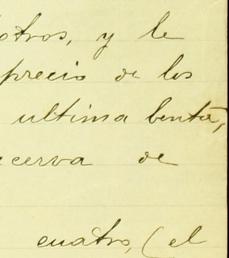 otros, y le
precio de los
ultima benta,
cerva de
cuatro, (el